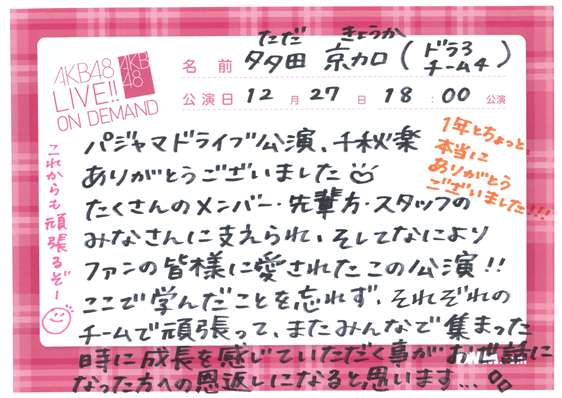 AKB48
LIVE!!
ON DEMAND
AKB
48
ただ きょうか
名前 多田 京加 (ドラ3
チーム4)
公演日 12月27日 18:00 公演
パジャマドライブ公演、千秋楽
ありがとうございました
たくさんのメンバー・先輩方・スタッフの
みなさんに支えられ、そしてなにより
ファンの皆様に愛されたこの公演!!
ここで学んだことを忘れず、それぞれの
チームで頑張って、またみんなで集まった
時に成長を感じていただく事がお世話に
なった方への恩返しになると思います...
1年とちょっと、
本当に
ありがとう
ございました!!!
これからも頑張るぞー